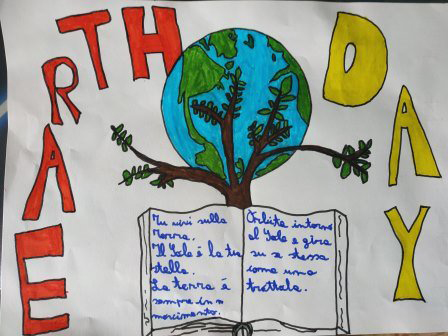 EARTH
DAY
Tu vivi sulla
Terra.
Il Sole è la tua
stella.
La terra è
sempre in
movimento.
Orbita intorno
al Sole e gira
su se stessa
come una
trottola.